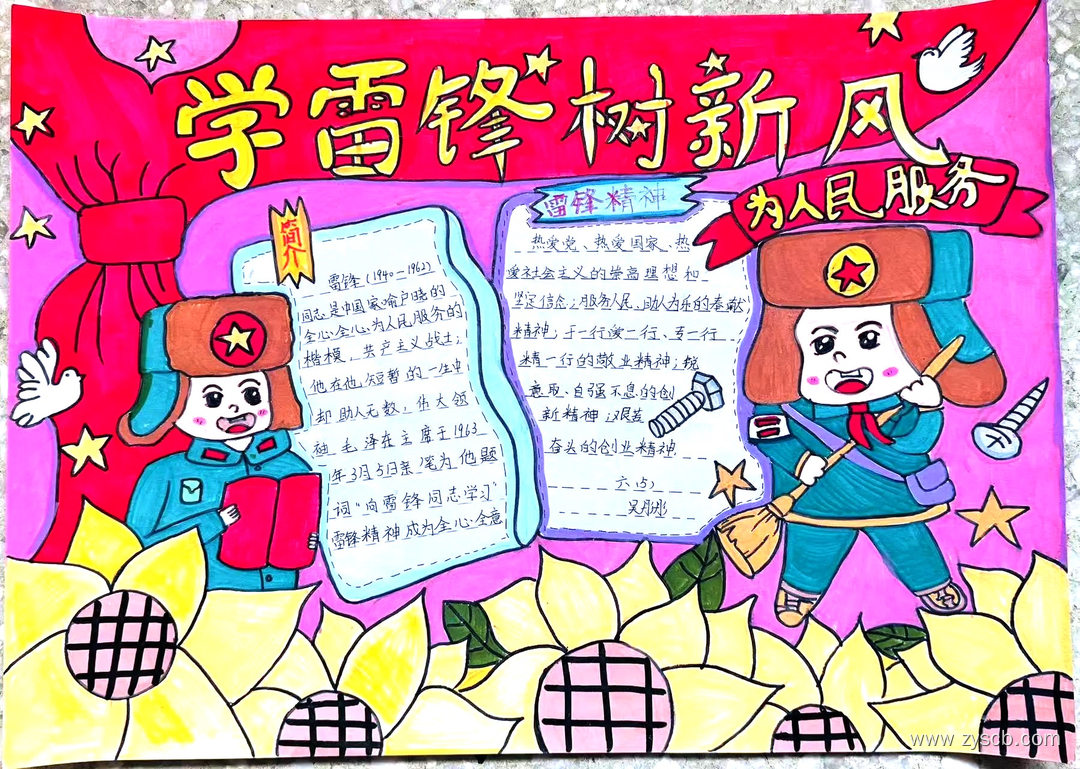 学雷锋树新风
为人民服务
简介
雷锋(1940—1962)
同志是中国家喻户晓的
全心全心为人民服务的
楷模,共产主义战士;
他在他短暂的一生中
却助人无数,伟大领
袖毛泽东主席于1963
年3月5日亲笔为他题
词“向雷锋同志学习”
雷锋精神成为全心全意
雷锋精神
热爱党、热爱国家、热
爱社会主义的崇高理想和
坚定信念;服务人民、助人为乐的奉献
精神;干一行爱一行、专一行
精一行的敬业精神;锐
意取、自强不息的创
新精神;艰苦
奋头的创业精神
六(5)
吴彤彤
www.zyscb.com